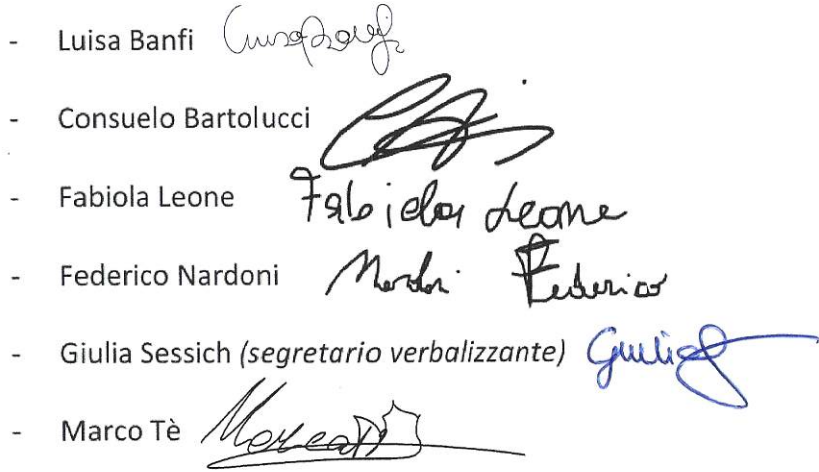 - Luisa Banfi Luisa Banfi
- Consuelo Bartolucci
- Fabiola Leone Fabiola Leone
- Federico Nardoni Nardoni Federico
- Giulia Sessich (segretario verbalizzante) Giulia
- Marco Tè Marco Tè